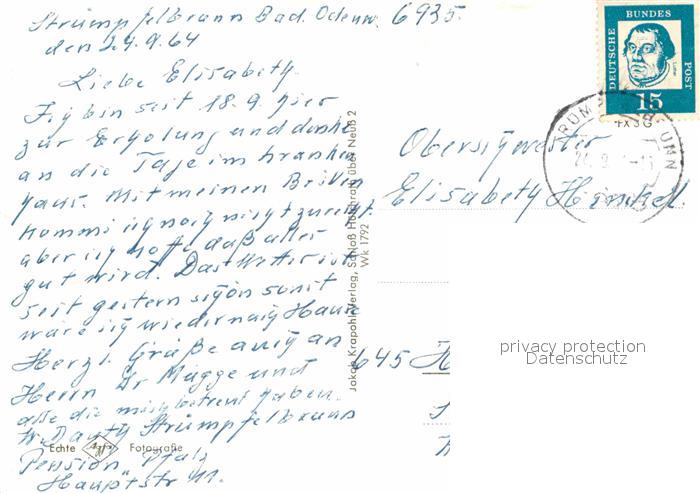 Strümpfelbrunn Bad. Odenw. 6935.
den 24.9.64
Liebe Elisabeth.
Ich bin seit 18.9. hier
zur Erholung und denke
an die Tage im Kranken
haus. Mit meinen Brillen
komm ich noch nicht zurecht.
aber ich hoffe daß alles
gut wird. Das Wetter ist
seit gestern schön sonst
wäre ich wieder nach Hause
Herzl. Grüße auch an
Herrn Dr Mügge und
alle die mich betreut haben.
Strümpfelbrunn
Pension Pfalz
Hauptstr 11.
Echte Agfa Fotografie
Jakob Krapohl-Verlag, Schloß Hülchrath über Neuß 2
Wk 1792
DEUTSCHE BUNDES POST
Luther
15
Oberschwester
Elisabeth Henkel.
645 H
privacy protection
Datenschutz